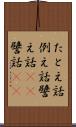 たとえ話
例え話譬
え話
譬話